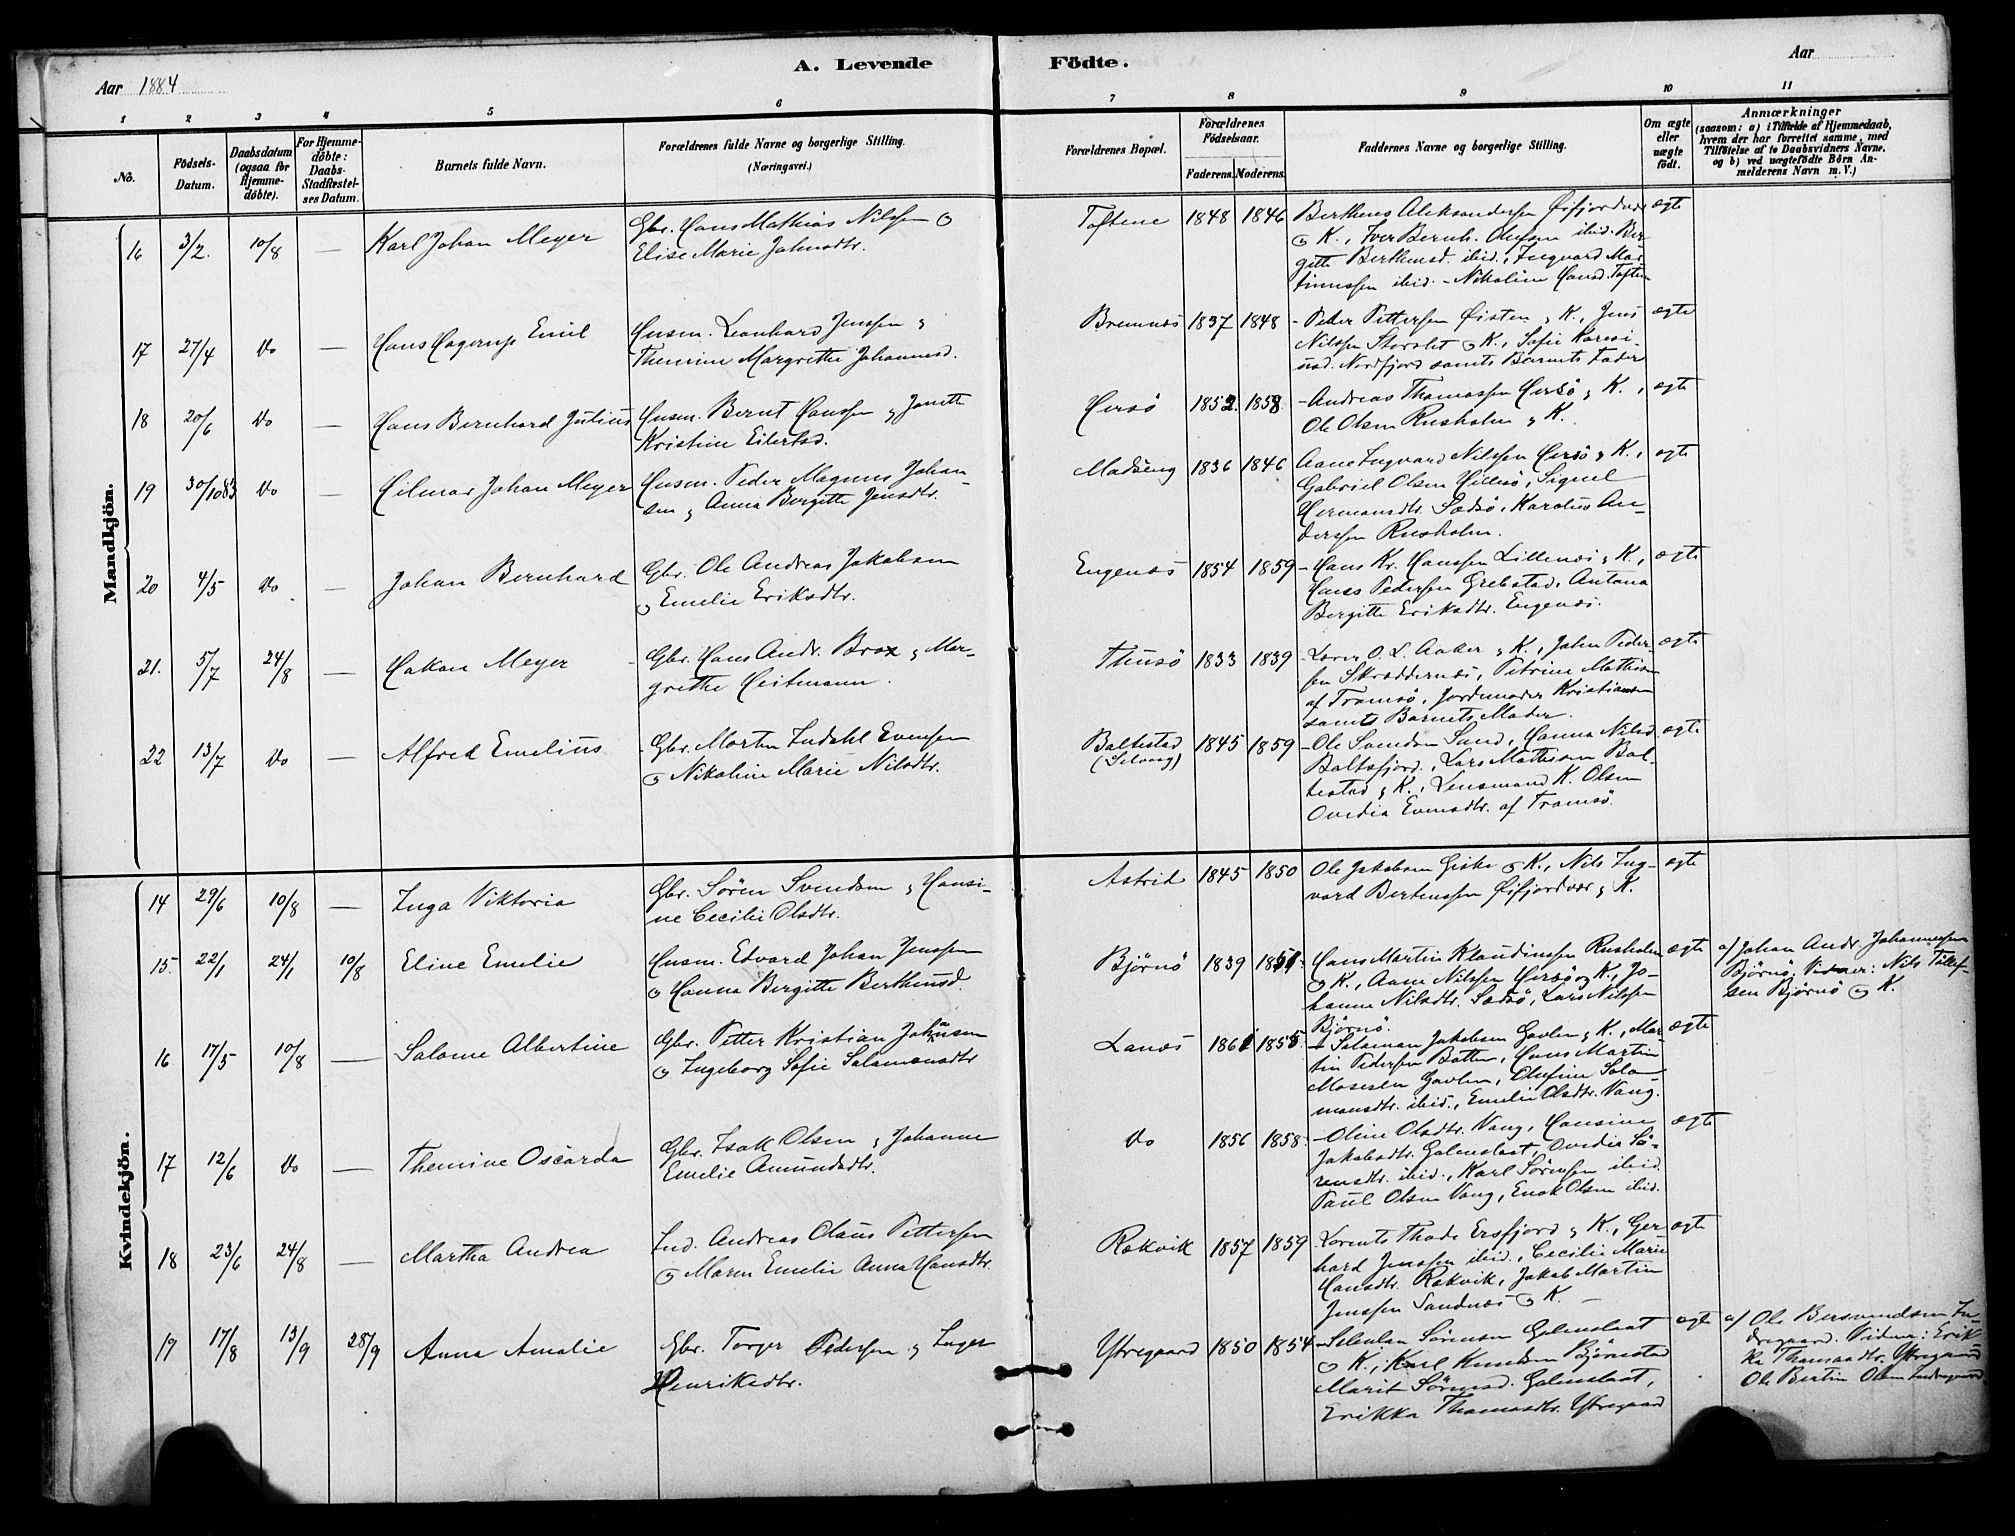 Aar 1884
A. Levende Födte.
Aar
1 2 3 4 5 6 7 8 9 10 11
No.
Födsels-Datum.
Daabsdatum (ogsaa for Hjemme-döbte).
For Hjemme-döbte: Daabs-Stadfæstel-ses Datum.
Barnets fulde Navn.
Forældrenes fulde Navne og borgerlige Stilling. (Næringsvei.)
Forældrenes Bopæl.
Forældrenes Födselsaar.
Faderens. Moderens.
Faddernes Navne og borgerlige Stilling.
Om ægte eller uægte födt.
Anmærkninger
(saasom: a) i Tilfælde af Hjemmedaab,
hvem der har forrettet samme, med
Tilföielse af to Daabsvidners Navne,
og b) ved uægtefödte Börn An-
melderens Navn m. V.)
Mandkjön.
16 3/2. 10/8 — Karl Johan Meyer
Gbr. Hans Mathias Nilssen og
Elise Marie Johnsdtr.
Toftene 1848 1846
Bertheus Aleksandersen Øifjordvær
og K., Iver Bernh. Olufsen ibid. Ber-
gitte Berthensd. ibid., Ingvard Mar-
tinussen ibid. - Nikoline Hansd. Toften
ægte
17 27/4 Do — Hans Hagerup Emil
Husm. Leonhard Jenssen og
Themine Margrethe Johannesd.
Bremnes 1837 1848
- Peder Pettersen Øisten og K., Jens
Nilssen Storslet og K., Sofie
Nordfjord samt Barnets Fader
ægte
18 20/6 Do — Hans Bernhard Julius
Husm. Bernt Hanssen og Janette
Kristine Eilertsd.
Hersö 1852. 1858.
- Andreas Thomassen Hersö og K.,
Ole Olsen Rusholm og K.
ægte
19 30/10 83 Do — Hilmar Johan Meyer
Husm. Peder Magnus Johan-
sen og Anna Bergitte Jensdtr.
Madseng 1836 1846
Aane Ingvard Nilssen Hersö og K.,
Gabriel Olsen Hillesö, Signel
Hermansdtr. Sædsö, Karolius An-
derssen Rusholm.
ægte
20 4/5 Do — Johan Bernhard
Gbr. Ole Andreas Jakobsen
og Emelie Eriksdtr.
Engenæs 1854 1859
- Hans Kr. Hanssen Lillenæs og K.,
Hans Pedersen Grebstad, Antona
Bergitte Eriksdtr. Engenæs.
ægte
21. 5/7 24/8 — Hakon Meyer
Gbr. Hans Andr. Brox og Mar-
grethe Heitmann.
Tussö 1833 1839
- Lærer O. L. Aaker og K., John Peder-
sen Skræddernæs, Petrine Mathisen
af Tromsö, Jordemoder Kristiansen
samt Barnets Moder.
ægte
22 13/7 Do — Alfred Emelius
Gbr. Morten Indahl Evensen
og Nikoline Marie Nilsdtr.
Baltestad
(Selvaag)
1845 1859
- Ole Svendsen Sand, Hanna Nilsd.
Baltsfjord, Lars Mathisen Bal-
testad og K., Lensmand K. Olsen
Ovedia Evensdtr. af Tromsö.
ægte
Kvindekjön.
14 29/6 10/8 — Inga Viktoria
Gbr. Sören Svendsen og Hansi-
ne Cecilie Olsdtr.
Astrid 1845 1850
Ole Jakobsen Giske og K., Nils Ing-
vard Bertenssen Øifjordvær og K.
ægte
15. 22/1 24/1 10/8 Eline Emelie
Husm. Edvard Johan Jenssen
og Hanna Bergitte Berthensd.
Björnö 1839 1851
Hans Martin Klaudiussen Rusholm
og K., Aane Nilssen Hersö og K., Jo-
hanna Nilsdtr. Sædsö, Lars Nilssen
Björnö.
ægte
a/ Johan Andr. Johannessen
Björnö, Vidner: Nils Tollef-
sen Björnö og K.
16 17/5 10/8 — Salome Albertine
Gbr. Petter Kristian Johansen
og Ingeborg Sofie Salamonsdtr.
Lanæs 1861 1855
- Salamon Jakobsen Gavlen og K., Mar-
tin Pedersen Botten, Hans Martin
Mosesen Gavlen, Olufine Salo-
monsdtr. ibid., Emelie Olsdtr. Vang.
ægte
17 12/6 Do — Themine Oscarda
Gbr. Isak Olsen og Johanne
Emelie Amundsdtr.
Do 1856 1858.
- Oline Olsdtr. Vang, Hansine
Jakobsdtr. Galnslaat, Ovedia Sö-
rensdtr. ibid., Karl Sörensen ibid.
Paul Olsen Vang, Enok Olsen ibid.
ægte
18 23/6 24/8 — Martha Andrea
Ind. Andreas Olaus Pettersen
og Maren Emelie Anna Hansdtr.
Rækvik 1857 1859
- Lorents Thode Ersfjord og K., Ger-
hard Jenssen ibid., Cecilie Marie
Hansdtr. Rækvik, Jakob Martin
Jenssen Sandnæs og K. —
ægte
19 17/8 13/9 28/9 Anna Amalie
Gbr. Torger Pedersen og Inger
Henriksdtr.
Ytregaard 1850 1854
- Sörensen Galnslaat
og K., Karl Knudsen Björnstad
Marit Sörensd. Galnslaat,
Erikka Thomasdtr. Ytregaard
ægte
a/ Ole Bersvendsen In-
dregaard. Vidner: Erik-
ka Thomasdtr. Ytregaard
Ole Bertin Olsen Indregaard